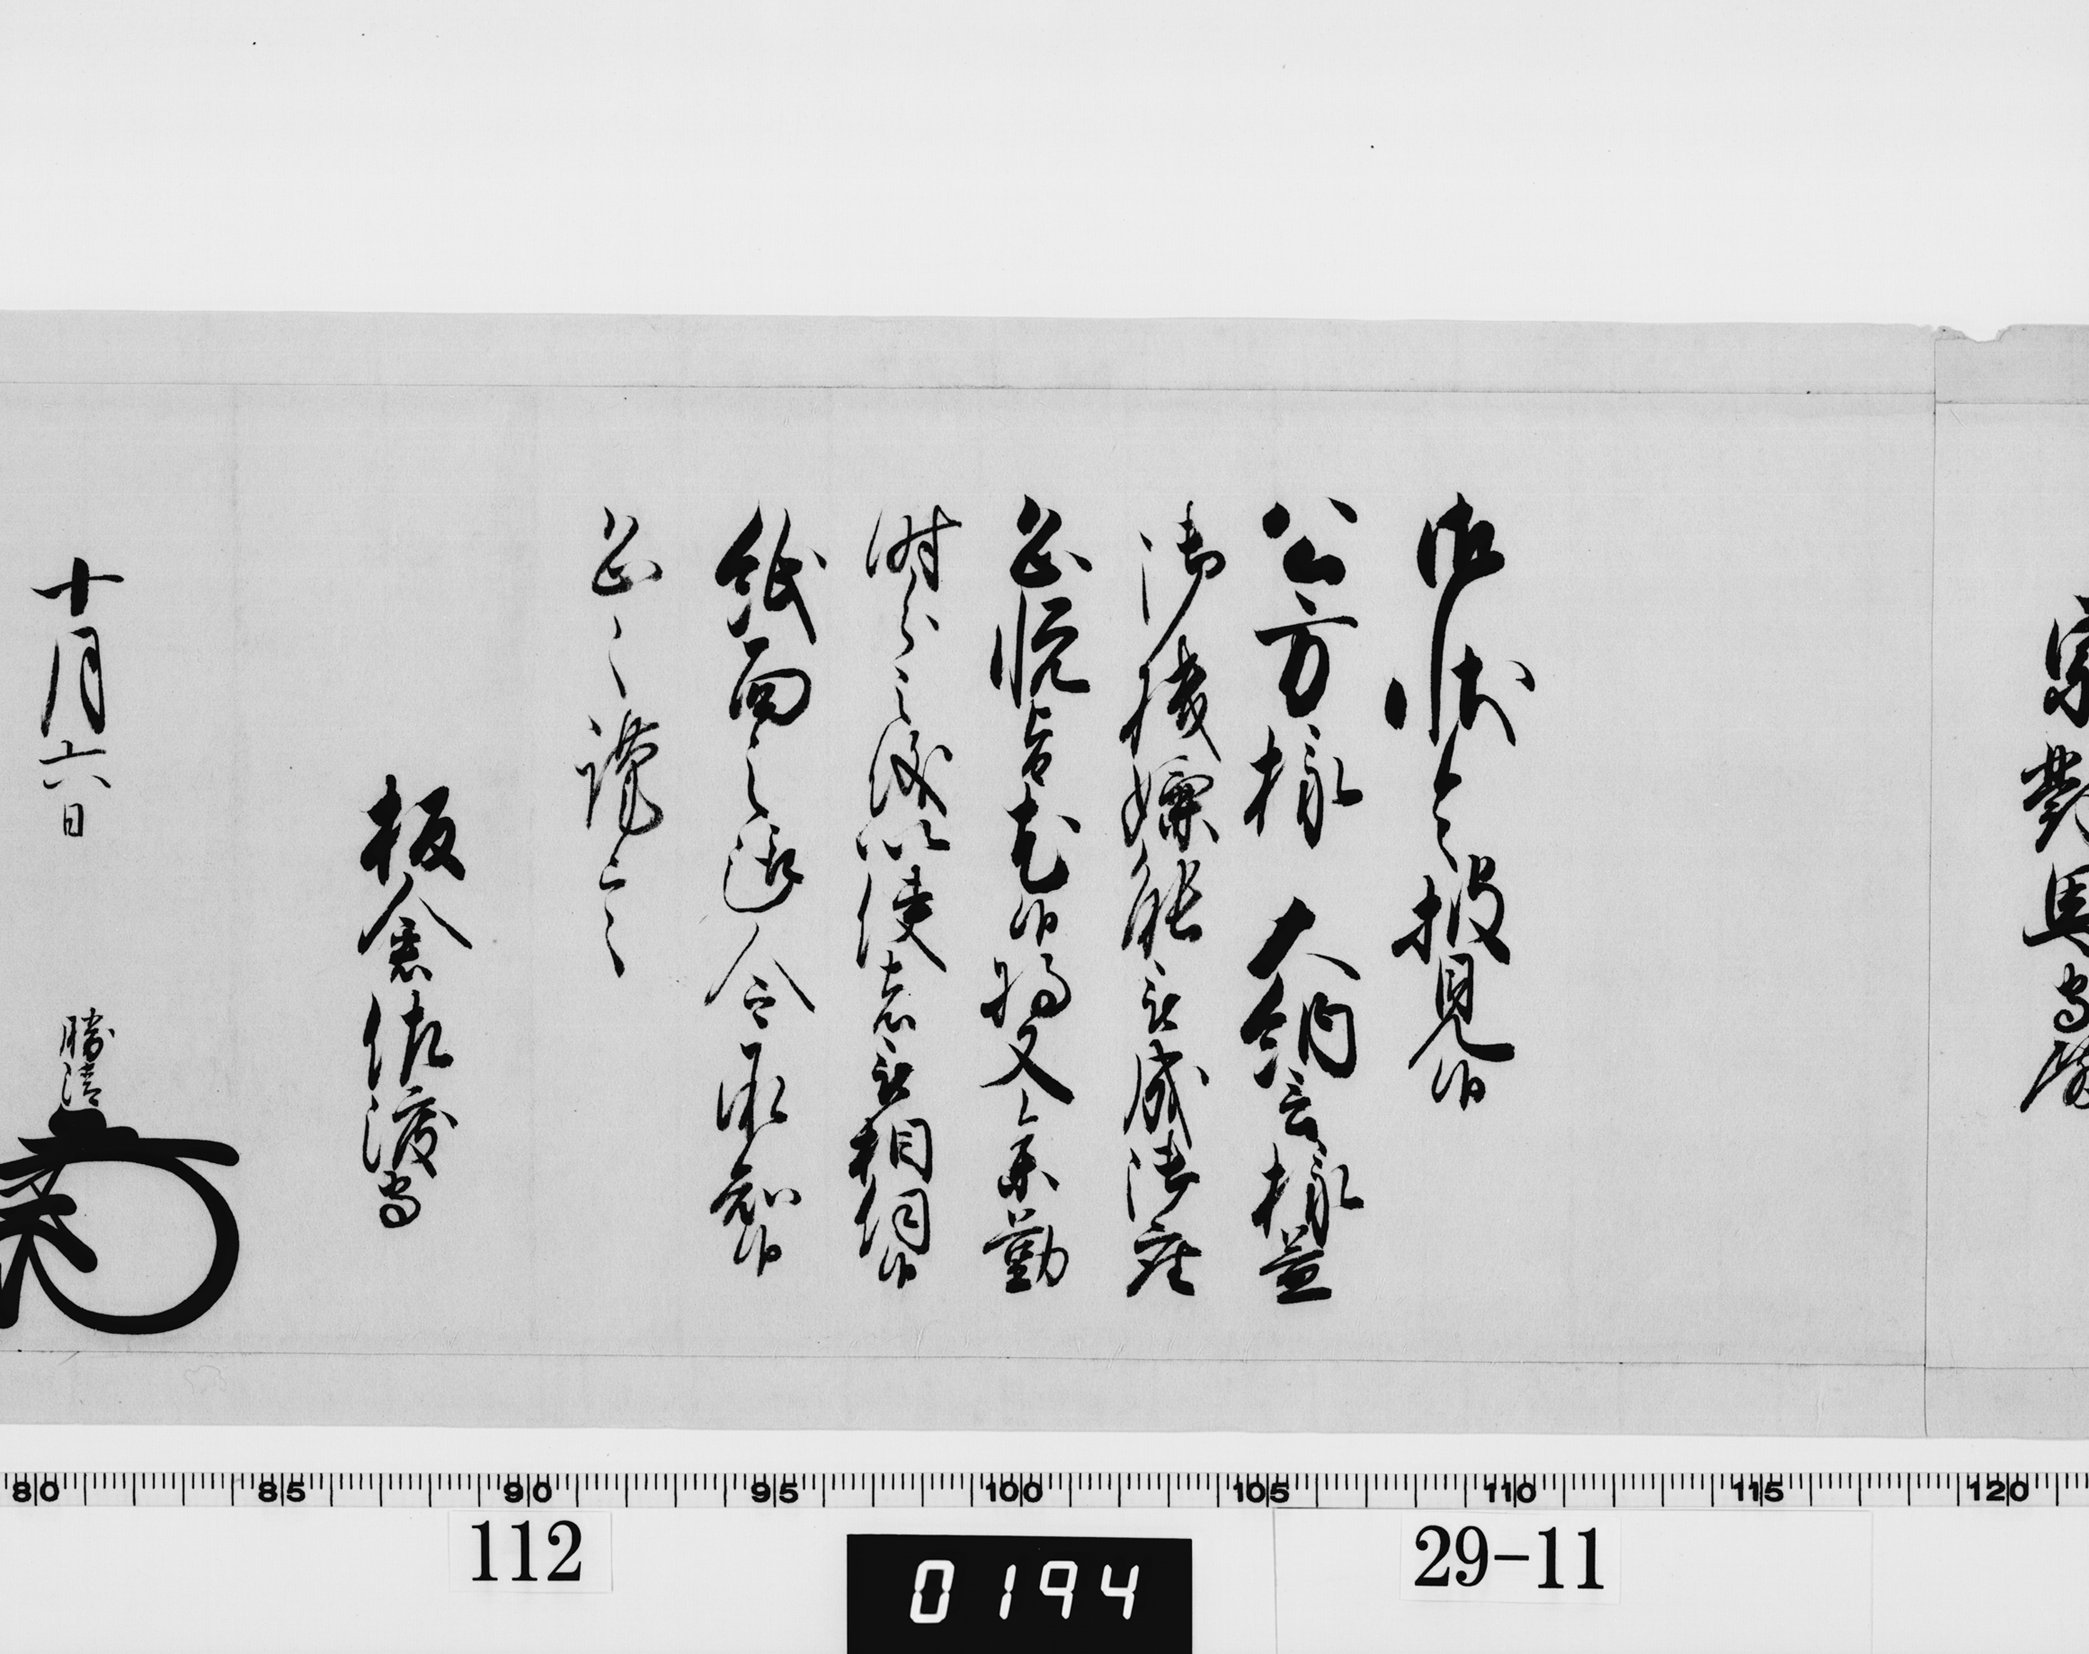 宗對馬守殿
御状令披見候
公方様 大納言様益
御機嫌能被成御座
恐悦旨尤候将又参勤
時分之儀以使者被相伺候
紙面之趣令承知候
恐々謹言
板倉佐渡守
十月六日 勝清
80 85 90 95 100 105 110 115 120
112 0194 29-11